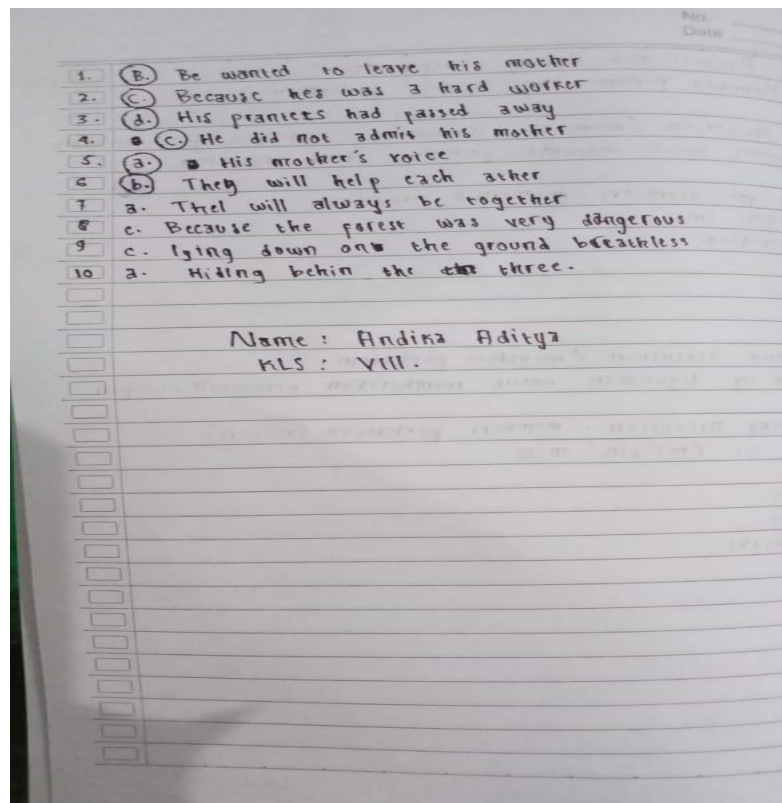 No.
Date
1. B. Be wanted to leave his mother
2. C. Because hes was a hard worker
3. d. His prantets had passed away
4. C. He did not admit his mother
5. a. His mother's voice
6 b. They will help each other
7 a. Thel will always be together
8 c. Because the forest was very dangerous
9 c. lying down on the ground breathless
10 a. Hiding behin the three.
Name : Andika Aditya
KLS : VIII.